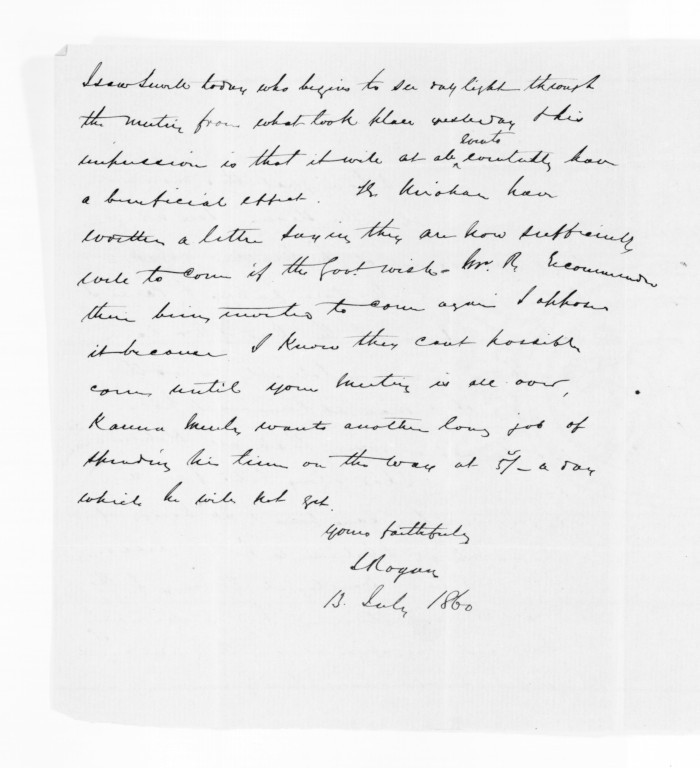 I saw Smith today who begins to see daylight through
the meeting from what took place yesterday & his
impression is that it will at all events eventually have
a beneficial effect. The have
written a letter saying they are now sufficiently
well to come if the Govt wish - Mr. R recommends
their being invited to come again I oppose
it because I know they cant possibly
come until your meeting is all over,
wants another long job of
spending his time on the way at 5/- a day
which he will not get.
Yours faithfully
J Rogan
13. July 1860